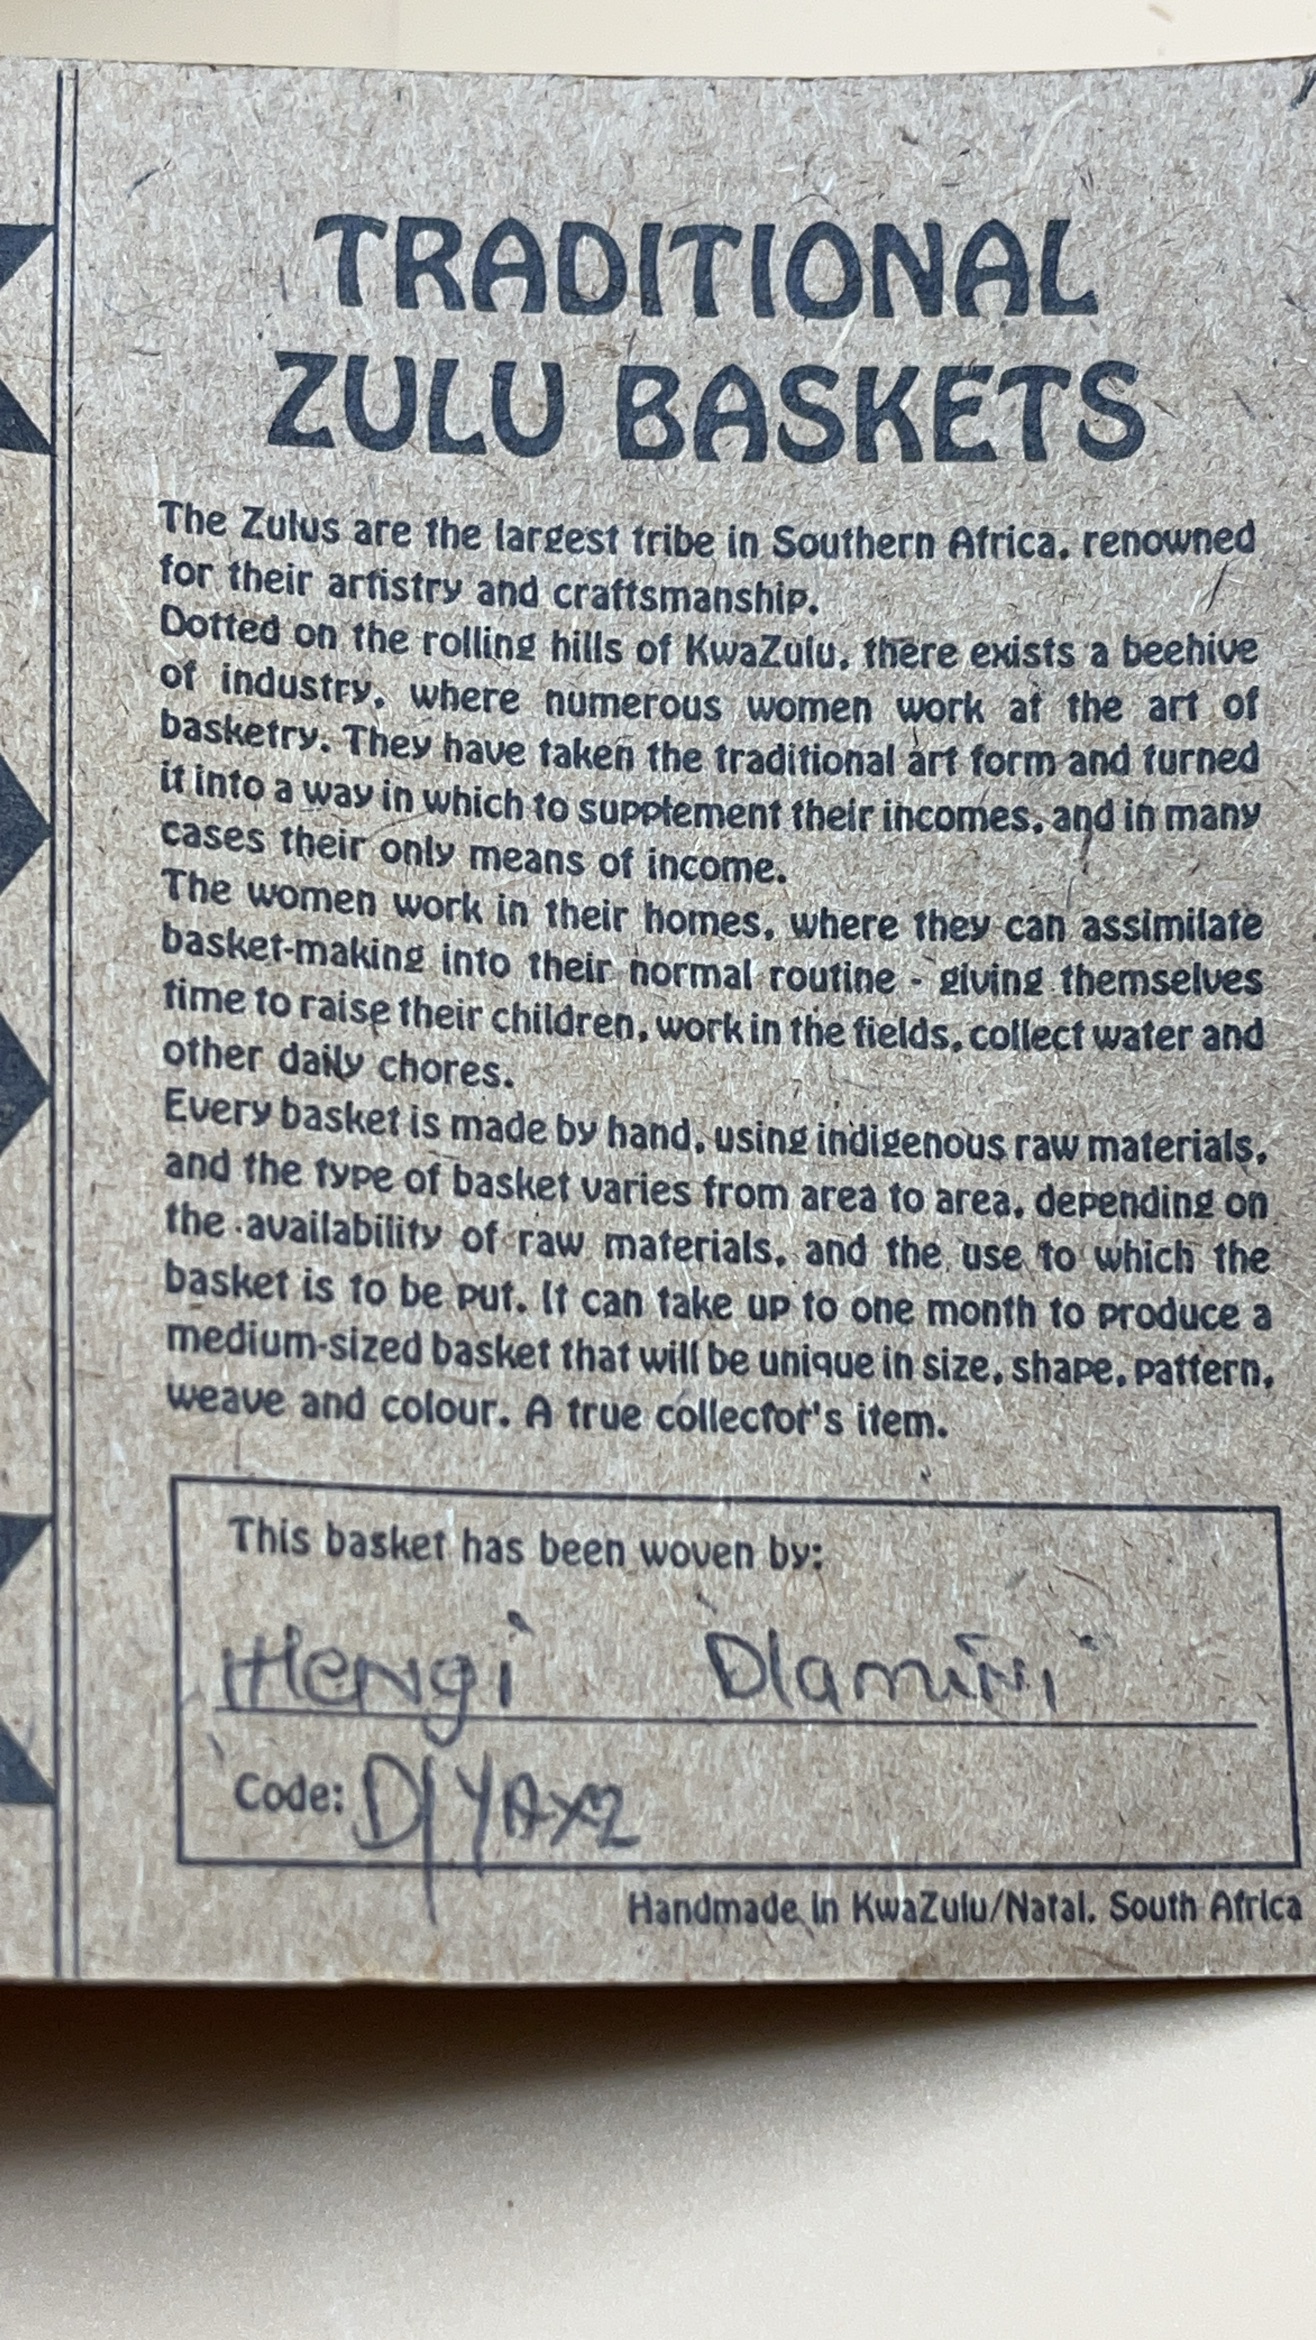 TRADITIONAL
ZULU BASKETS
The Zulus are the largest tribe in Southern Africa, renowned
for their artistry and craftsmanship.
Dotted on the rolling hills of KwaZulu, there exists a beehive
of industry, where numerous women work at the art of
basketry. They have taken the traditional art form and turned
it into a way in which to supplement their incomes, and in many
cases their only means of income.
The women work in their homes, where they can assimilate
basket-making into their normal routine - giving themselves
time to raise their children, work in the fields, collect water and
other daily chores.
Every basket is made by hand, using indigenous raw materials,
and the type of basket varies from area to area, depending on
the availability of raw materials, and the use to which the
basket is to be put. It can take up to one month to produce a
medium-sized basket that will be unique in size, shape, pattern,
weave and colour. A true collector's item.
This basket has been woven by:
Hlengi Dlamini
Code:
Handmade in KwaZulu/Natal, South Africa